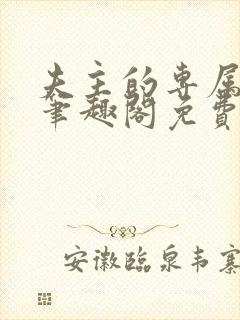 夫主的专属
笔趣阁免费
安徽临泉韦寨